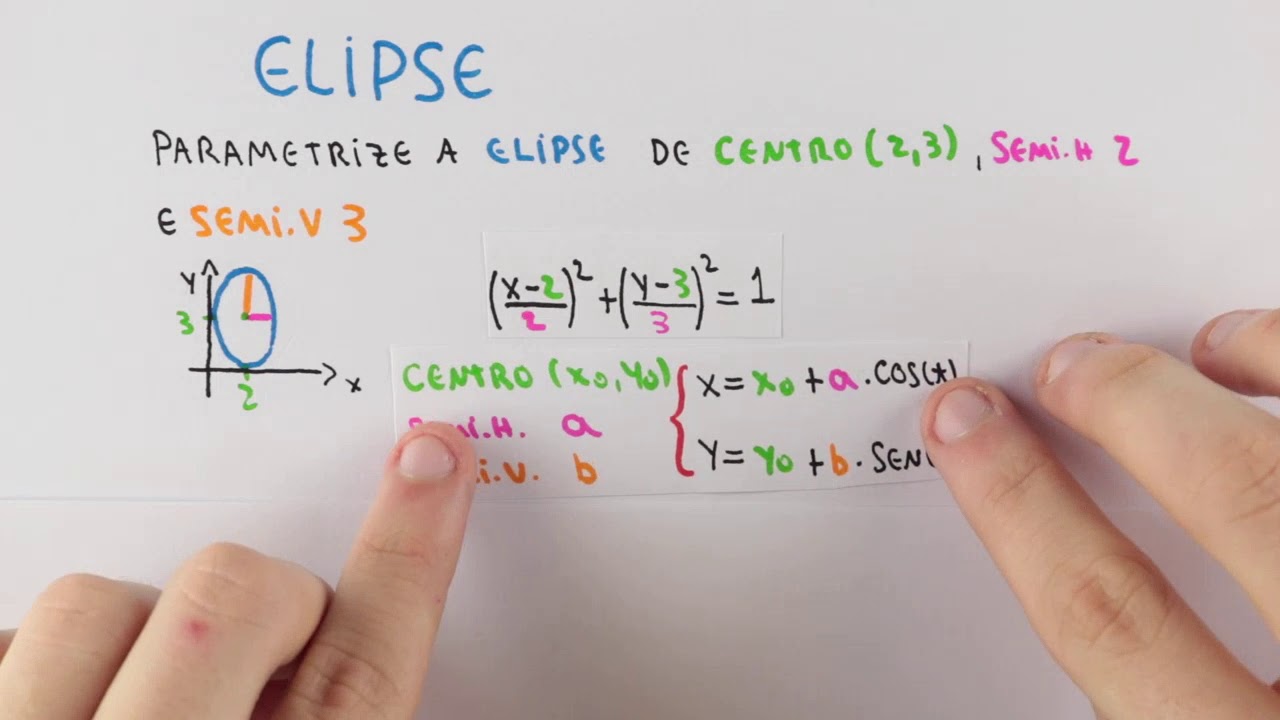 ELIPSE
PARAMETRIZE A ELIPSE DE CENTRO (2,3), SEMI.H 2
E SEMI.V 3
(x-2/2)² + (y-3/3)² = 1
Y
3
2
x
CENTRO (x0, y0)
a
b
x = x0 + a . COS(t)
y = y0 + b . SEN